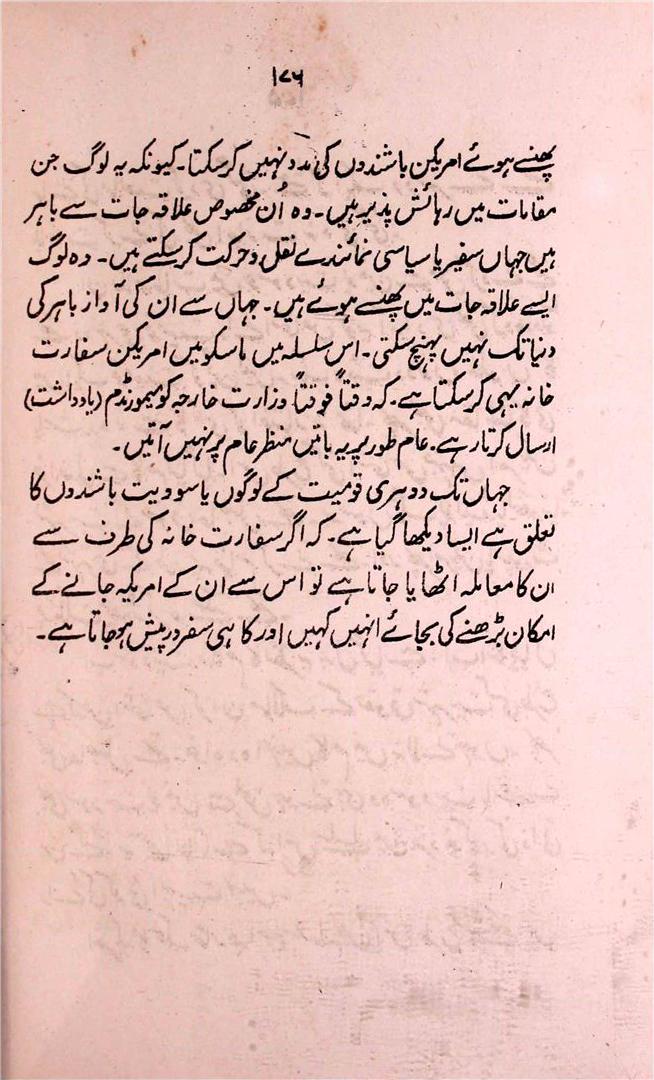 ۱۷۶
پھنسے ہوئے امریکن باشندوں کی مدد نہیں کرسکتا۔ کیونکہ یہ لوگ جن
مقامات میں رہائش پذیر ہیں۔ وہ اُن مخصوص علاقہ جات سے باہر
ہیں جہاں سفیر یا سیاسی نمائندے نقل و حرکت کرسکتے ہیں۔ وہ لوگ
ایسے علاقہ جات میں پھنسے ہوئے ہیں۔ جہاں سے ان کی آواز باہر کی
دنیا تک نہیں پہنچ سکتی۔ اس سلسلہ میں ماسکو میں امریکن سفارت
خانہ یہی کرسکتا ہے۔ کہ وقتاً فوقتاً وزارت خارجہ کو میمورنڈم (یادداشت)
ارسال کرتا رہے۔ عام طور پر یہ باتیں منظر عام پر نہیں آتیں۔
جہاں تک دوہری قومیت کے لوگوں یا سوویت باشندوں کا
تعلق ہے ایسا دیکھا گیا ہے۔ کہ اگر سفارت خانہ کی طرف سے
ان کا معاملہ اٹھایا جاتا ہے تو اس سے ان کے امریکہ جانے کے
امکان بڑھنے کی بجائے انہیں کہیں اور کا ہی سفر درپیش ہوجاتا ہے۔